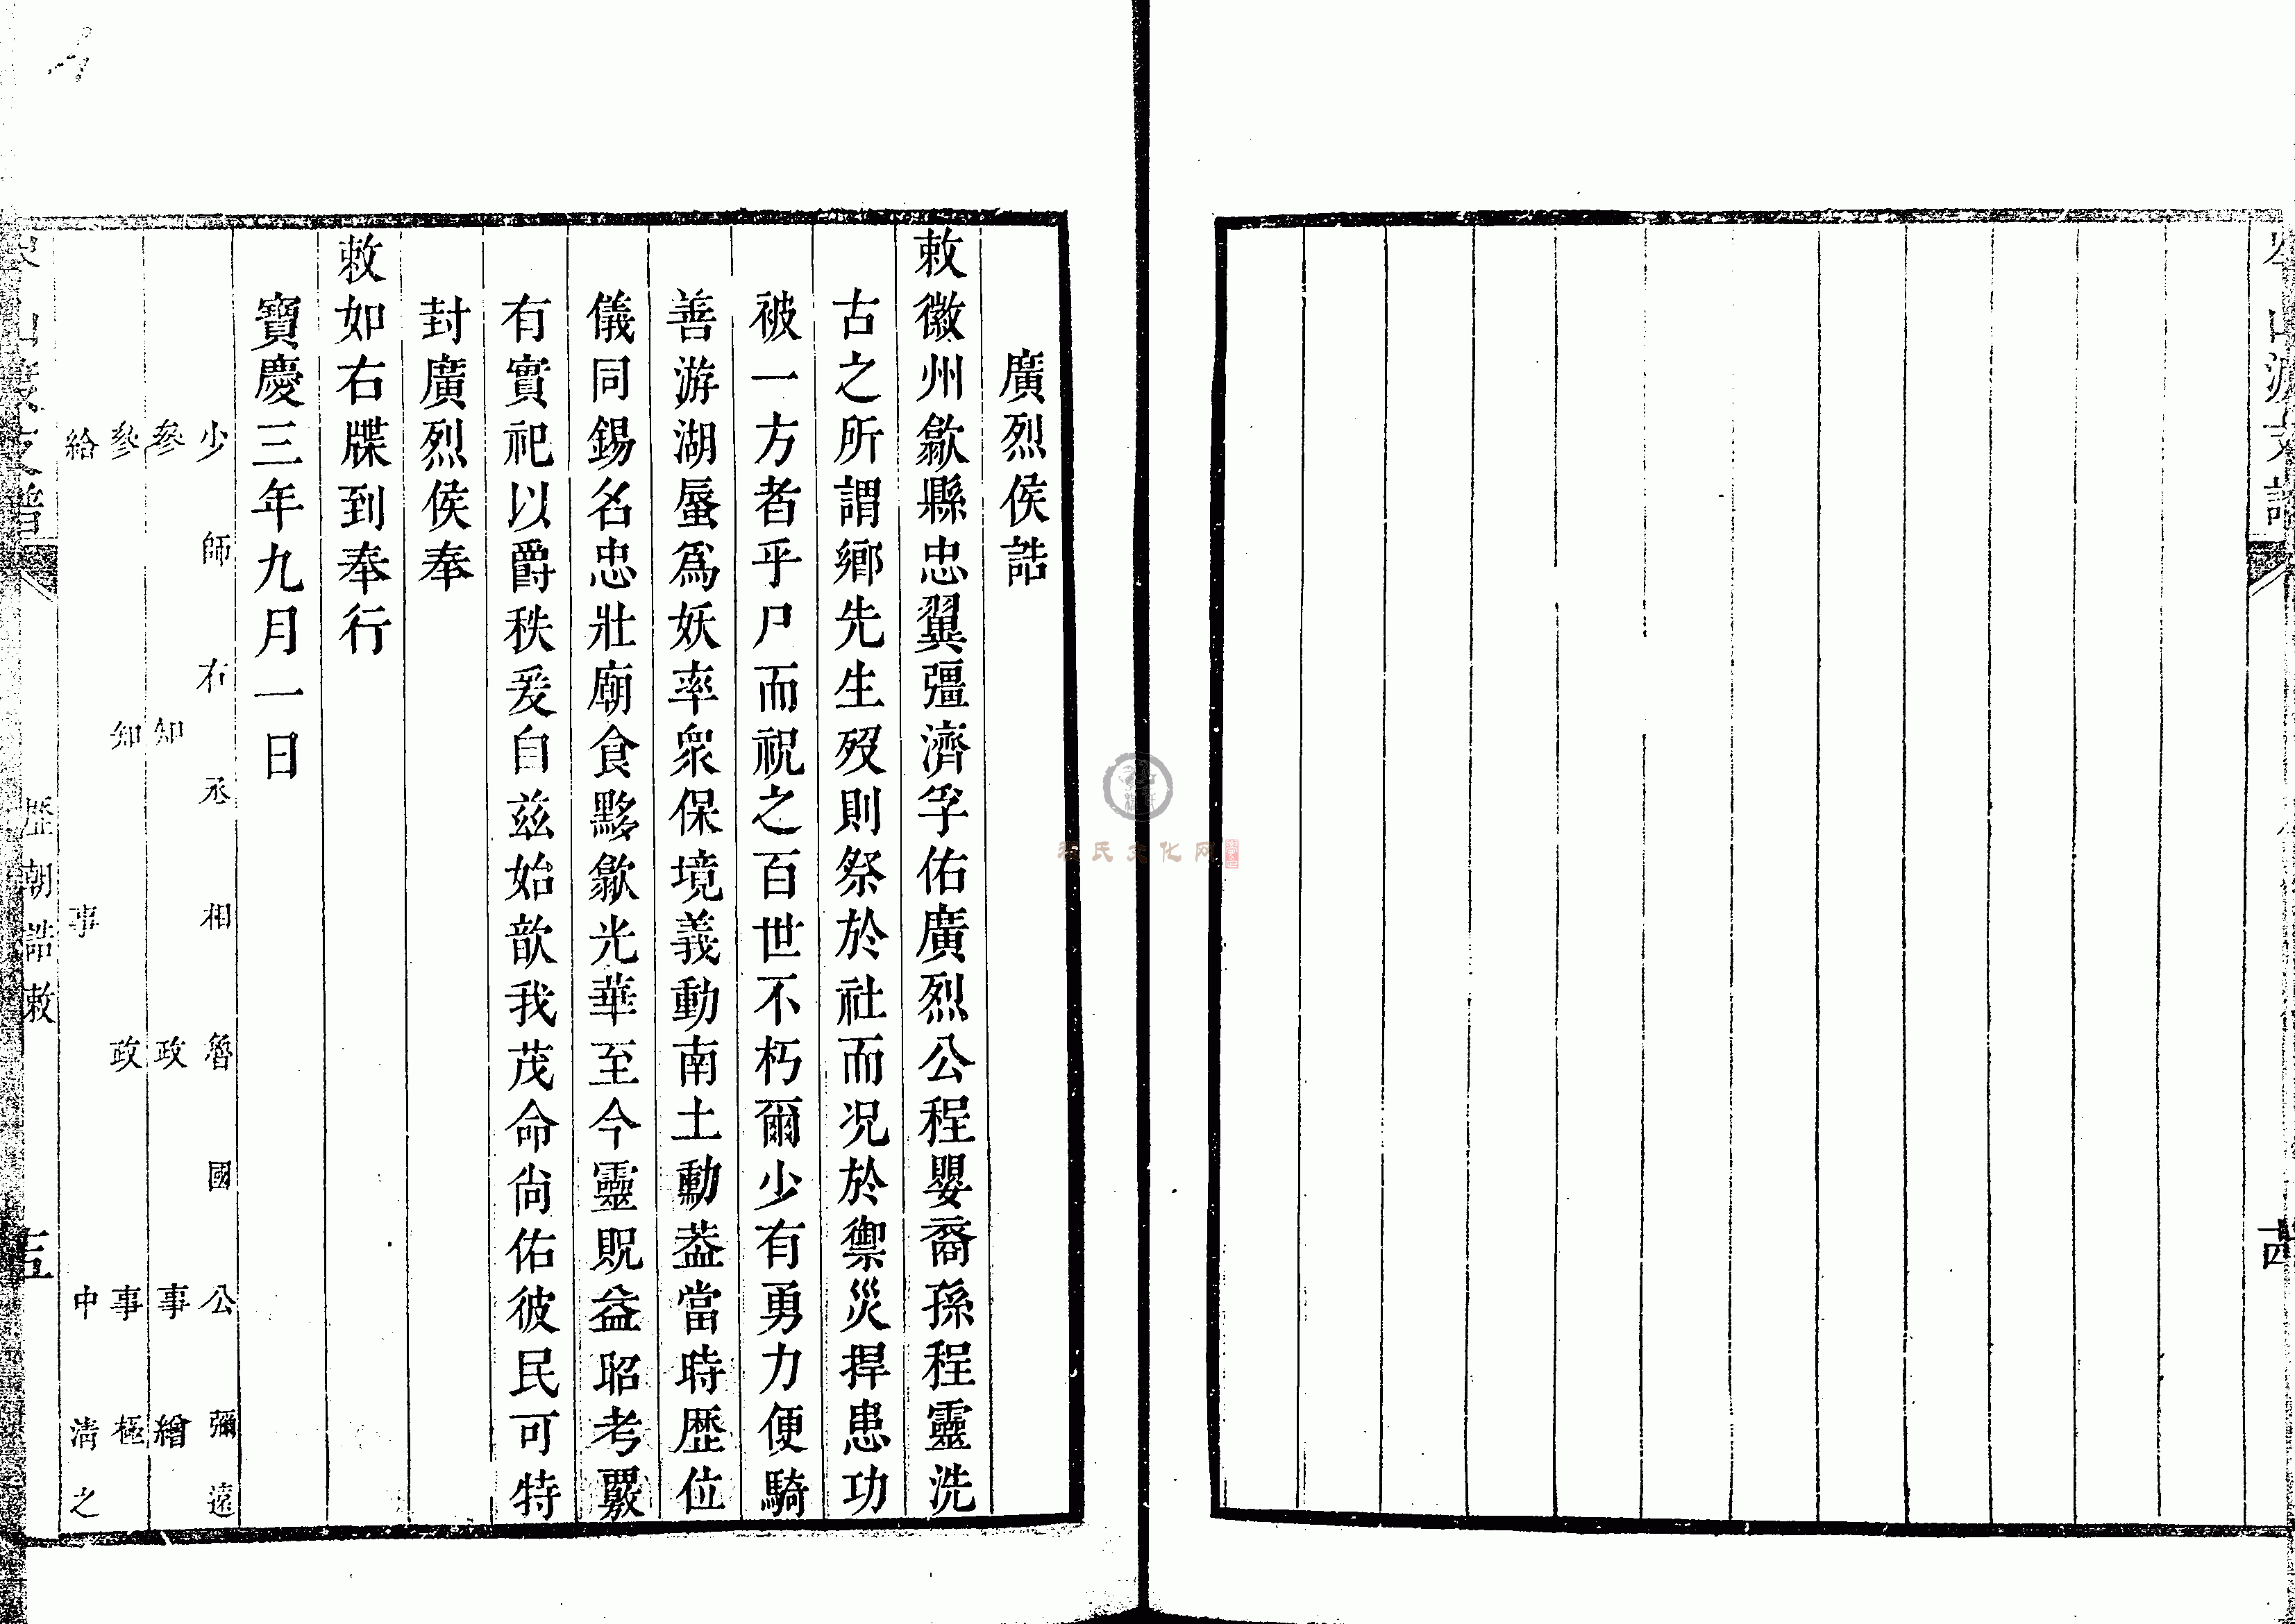 廣烈侯誥
敕徽州歙縣忠翼彊濟孚佑廣烈公程嬰裔孫程靈洗
古之所謂鄉先生歿則祭於社而况於禦災捍患功
被一方者乎尸而祝之百世不朽爾少有勇力便騎
善游湖蜃爲妖率衆保境義動南土勳葢當時歷位
儀同錫名忠壯廟食黟歙光華至今靈貺益昭考覈
有實祀以爵秩爰自兹始歆我茂命尙佑彼民可特
封廣烈侯奉
敕如右牒到奉行
寶慶三年九月一日
少師右丞相魯國公彌遠
參知政事繒
參知政事極
給事中淸之
歷朝誥敕
山派支譜
程氏文化网